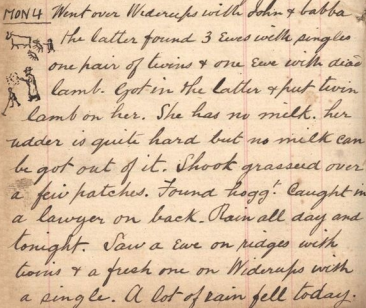 MON 4 Went over Widerups with John & babba
the latter found 3 Ewes with singles
one pair of twins & one Ewe with dead
lamb. Got in the latter & put twin
lamb on her. She has no milk. her
udder is quite hard but no milk can
be got out of it. Shook grasseed over
a few patches. Found hoggt. Caught in
a lawyer on back. Rain all day and
tonight. Saw a Ewe on ridges with
twins & a fresh one on Widerups with
a single. A lot of rain fell today.